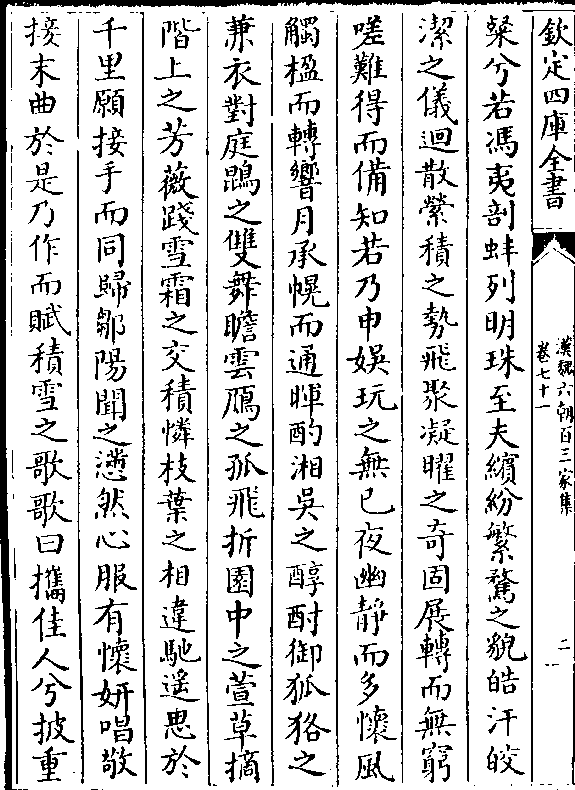 欽定四庫全書
漢魏六朝百三家集
卷七十一
二
粲兮若馮夷剖蚌列明珠至夫繽紛繁騖之貌皓汗皎
潔之儀迴散縈積之勢飛聚凝曜之奇固展轉而無窮
嗟難得而備知若乃申娛玩之無已夜幽靜而多懷風
觸楹而轉響月承幌而通暉酌湘吳之醇酎御狐狢之
兼衣對庭鵾之雙舞瞻雲鴈之孤飛折園中之萱草摘
階上之芳薇踐雪霜之交積憐枝葉之相違馳遥思於
千里願接手而同歸鄒陽聞之懣然心服有懷妍唱敬
接末曲於是乃作而賦積雪之歌歌曰攜佳人兮披重